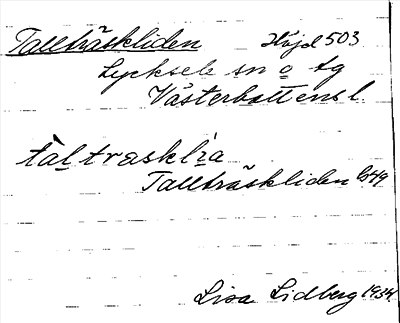 Tallträskliden Höjd 503
Lycksele sn o tg
Västerbottens l.
tàltrasklìa
Tallträskliden bs49
Lisa Lidberg 1934